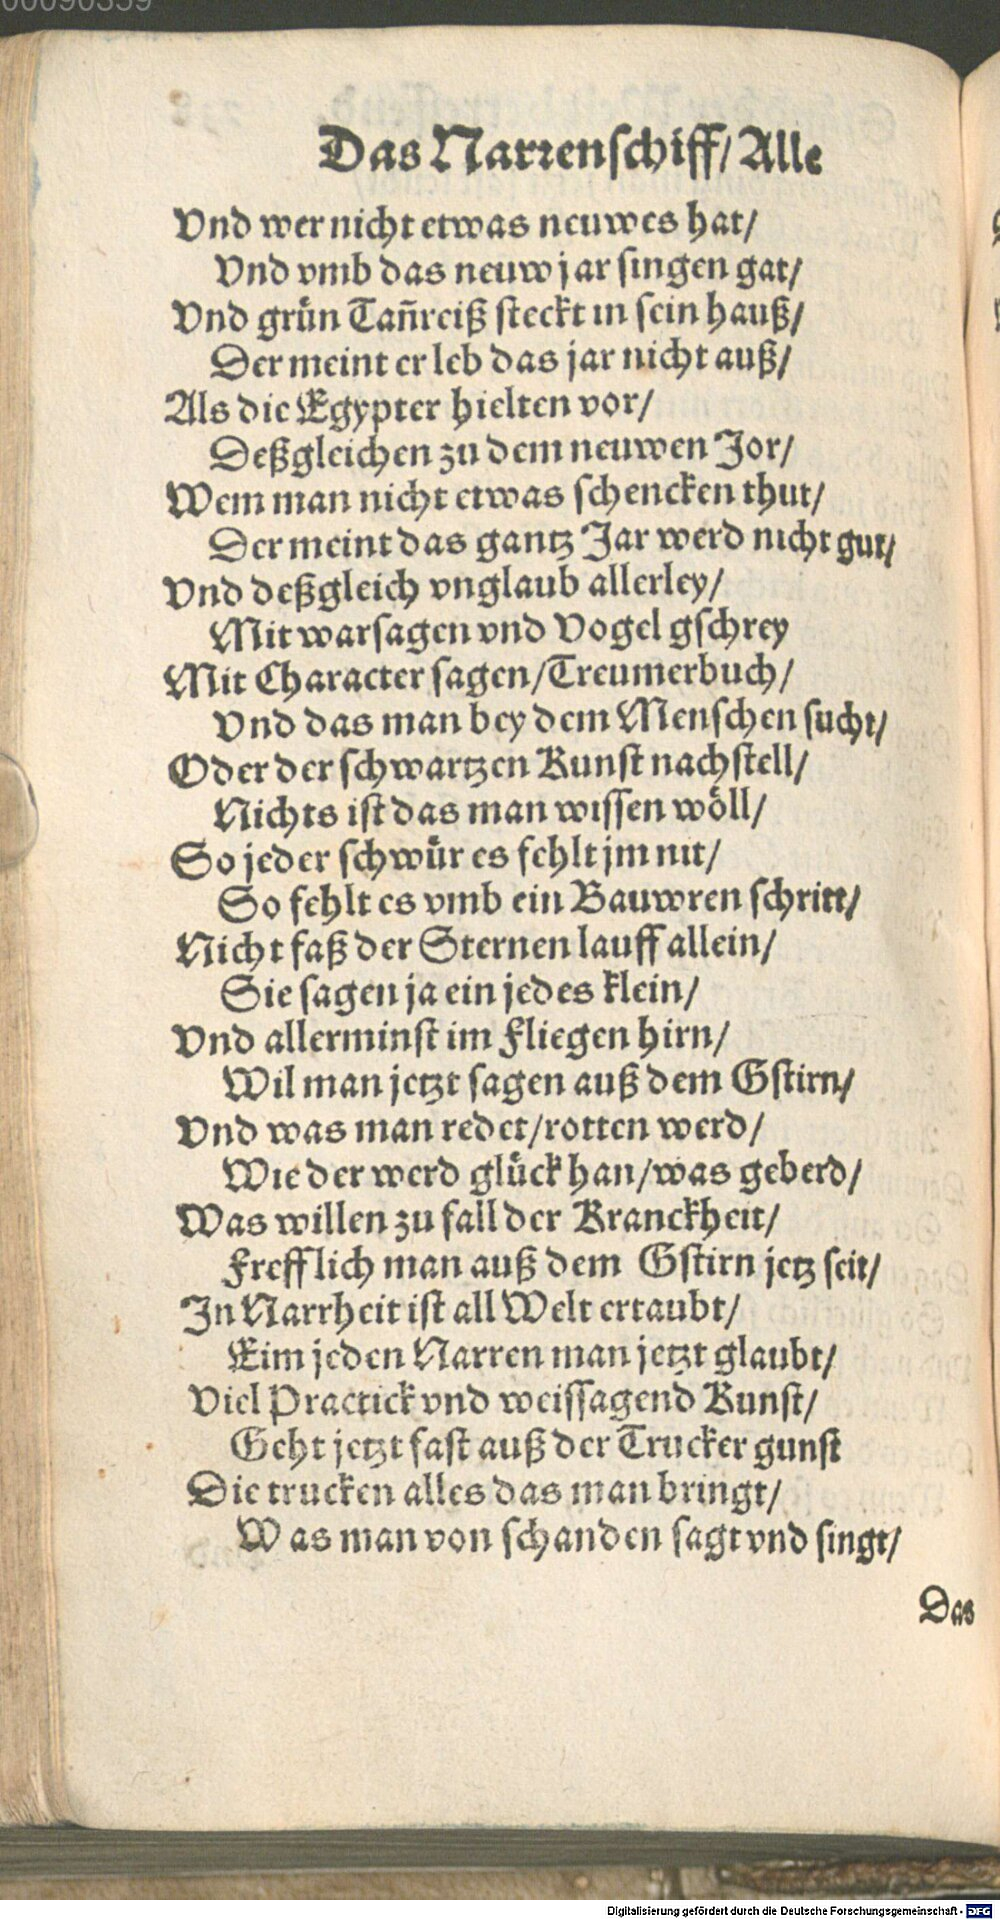 00090359
Das Narrenschiff/ Alle
Vnd wer nicht etwas neuwes hat/
Vnd vmb das neuw jar singen gat/
Vnd grün Tañreiß steckt in sein hauß/
Der meint er leb das jar nicht auß/
Als die Egypter hielten vor/
Deßgleichen zu dem neuwen Jor/
Wem man nicht etwas schencken thut/
Der meint das gantz Jar werd nicht gut/
Vnd deßgleich vnglaub allerley/
Mit warsagen vnd Vogel gschrey
Mit Character sagen/Treumerbuch/
Vnd das man bey dem Menschen sucht/
Oder der schwartzen Kunst nachstell/
Nichts ist das man wissen wöll/
So jeder schwür es fehlt jm nit/
So fehlt es vmb ein Bauwren schritt/
Nicht faß der Sternen lauff allein/
Sie sagen ja ein jedes klein/
Vnd allerminst im Fliegen hirn/
Wil man jetzt sagen auß dem Gstirn/
Vnd was man redet/rotten werd/
Wie der werd glück han/was geberd/
Was willen zu fall der Kranckheit/
Frefflich man auß dem Gstirn jetz seit/
In Narrheit ist all Welt ertaubt/
Eim jeden Narren man jetzt glaubt/
Viel Practick vnd weissagend Kunst/
Geht jetzt fast auß der Trucker gunst
Die trucken alles das man bringt/
Was man von schanden sagt vnd singt/
Das
Digitalisierung gefördert durch die Deutsche Forschungsgemeinschaft - DFG